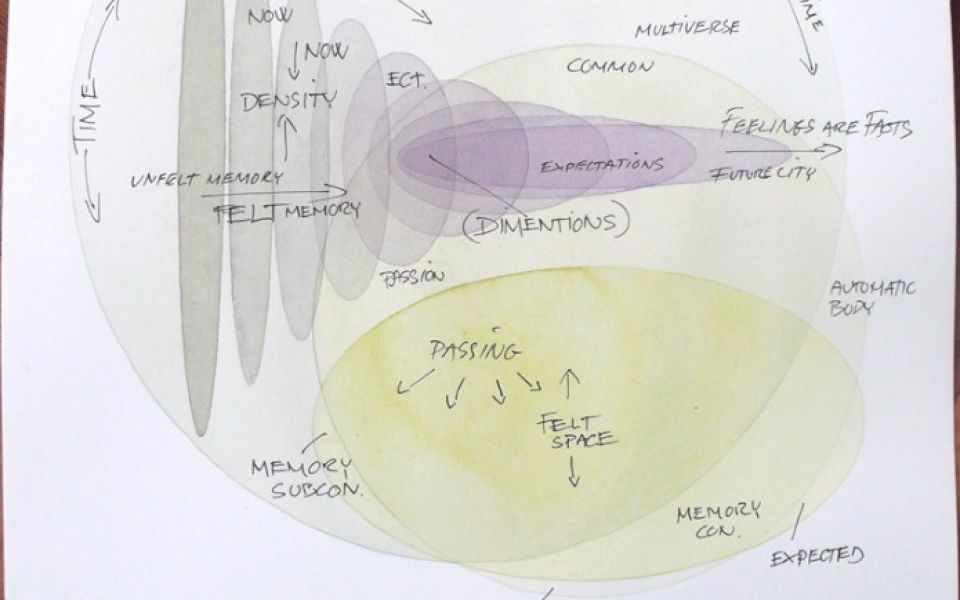 NOW
MULTIVERSE
NOW
COMMON
ECT.
TIME
DENSITY
FEELINGS ARE FACTS
EXPECTATIONS
UNFELT MEMORY
FUTURE CITY
FELT MEMORY
(DIMENTIONS)
PASSION
AUTOMATIC
BODY
PASSING
FELT
SPACE
MEMORY
SUBCON.
MEMORY
CON.
EXPECTED